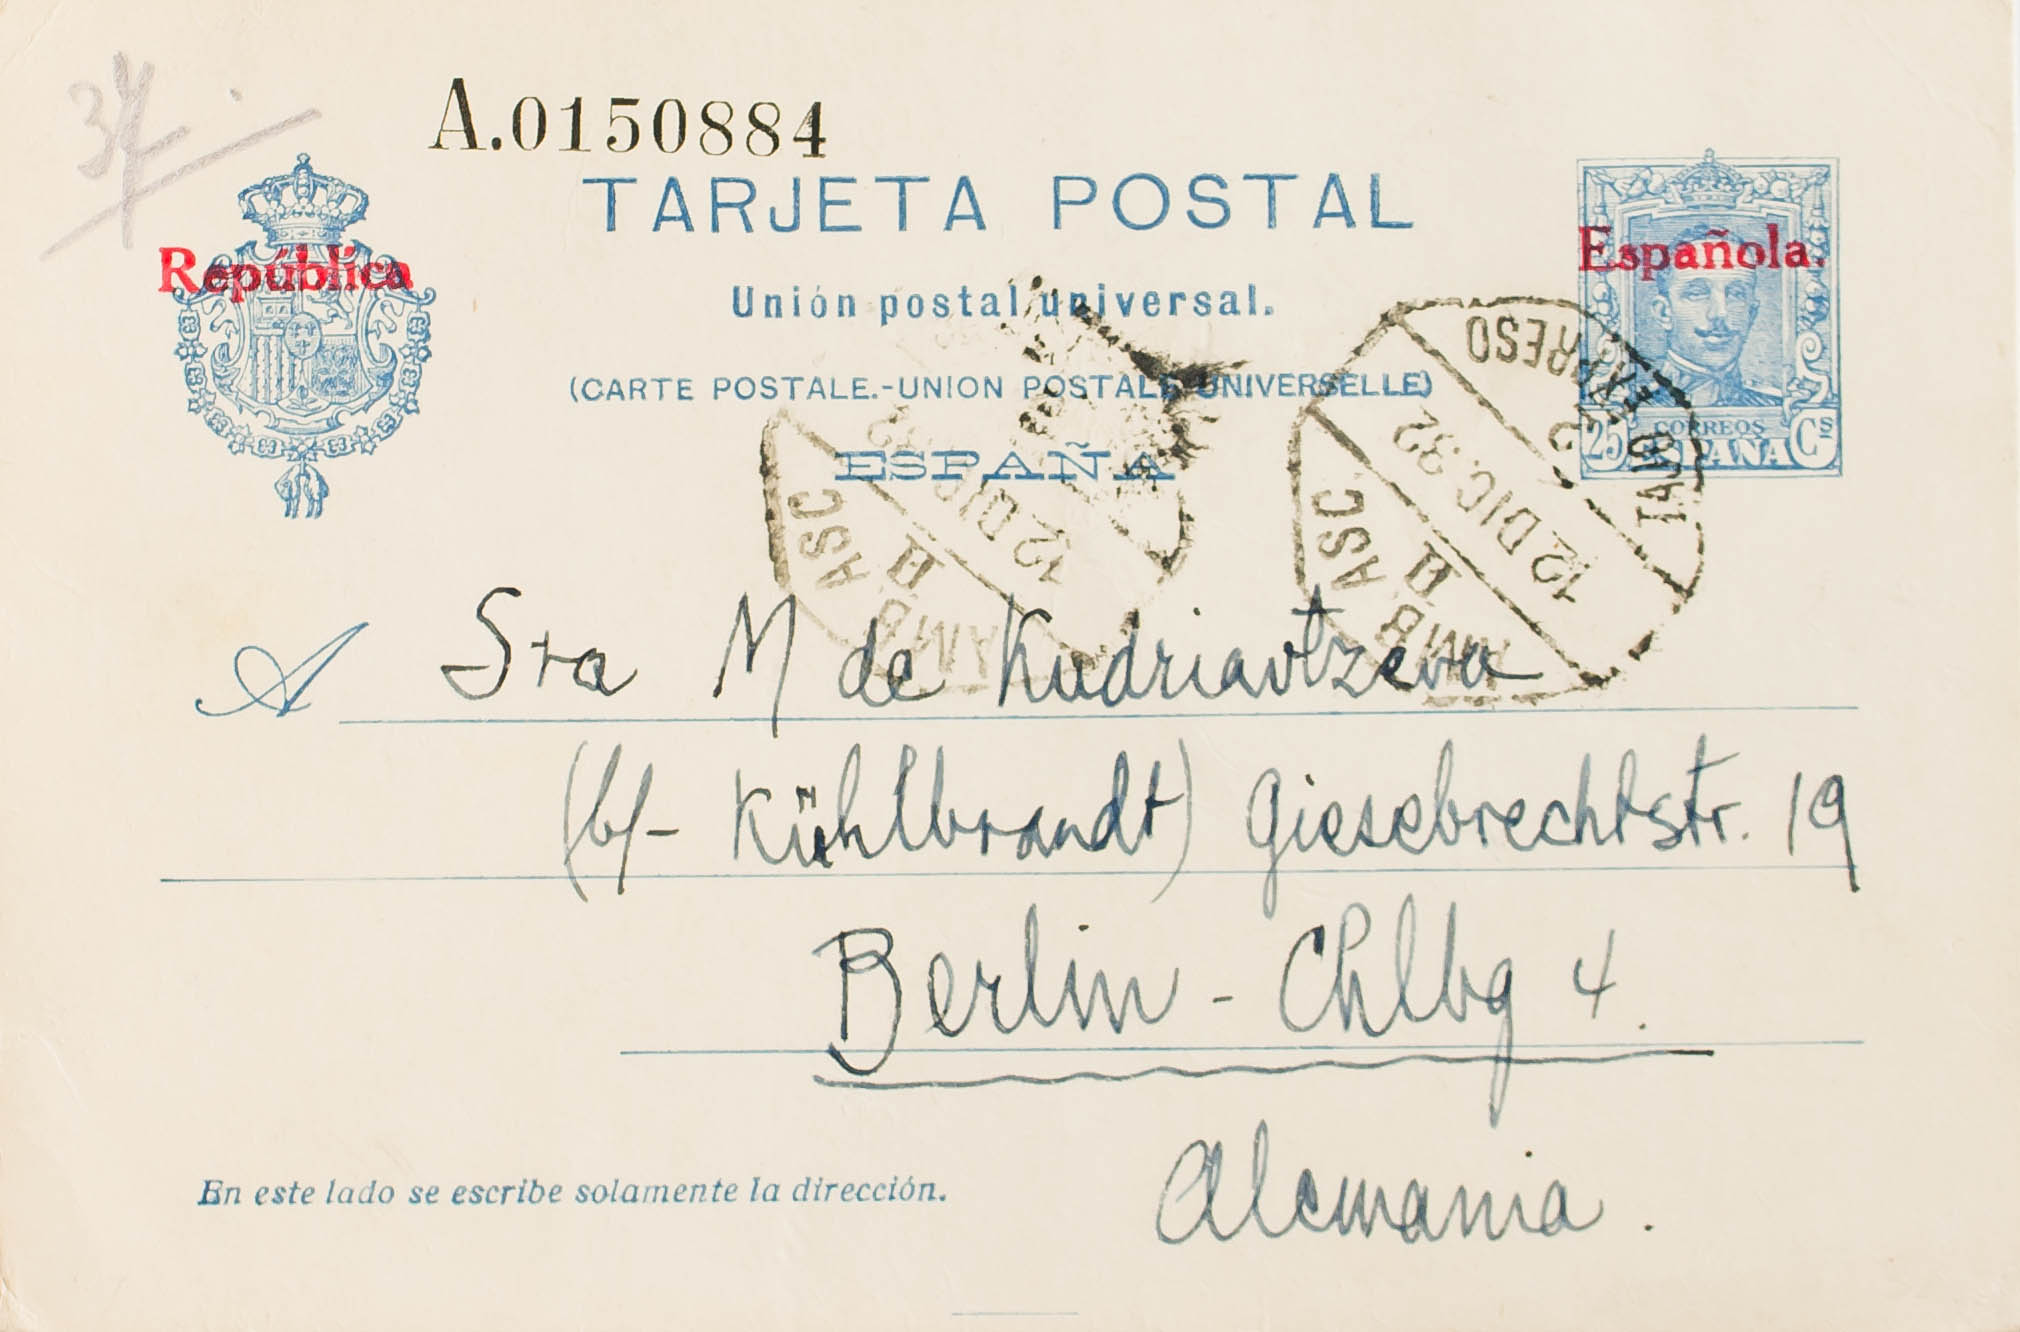 34
A.0150884
TARJETA POSTAL
República
Española.
Unión postal universal.
(CARTE POSTALE.-UNION POSTALE UNIVERSELLE)
ESPAÑA
CORREOS
25 ESPAÑA Cs
ASC
AMB. II
12 DIC. 32
ASC
AMB II
12 DIC. 32
2
Sra M de Kudriavtzeva
A
(b/- Kühlbrandt) Giesebrechtstr. 19
Berlin - Chlbg 4.
Alemania.
En este lado se escribe solamente la dirección.